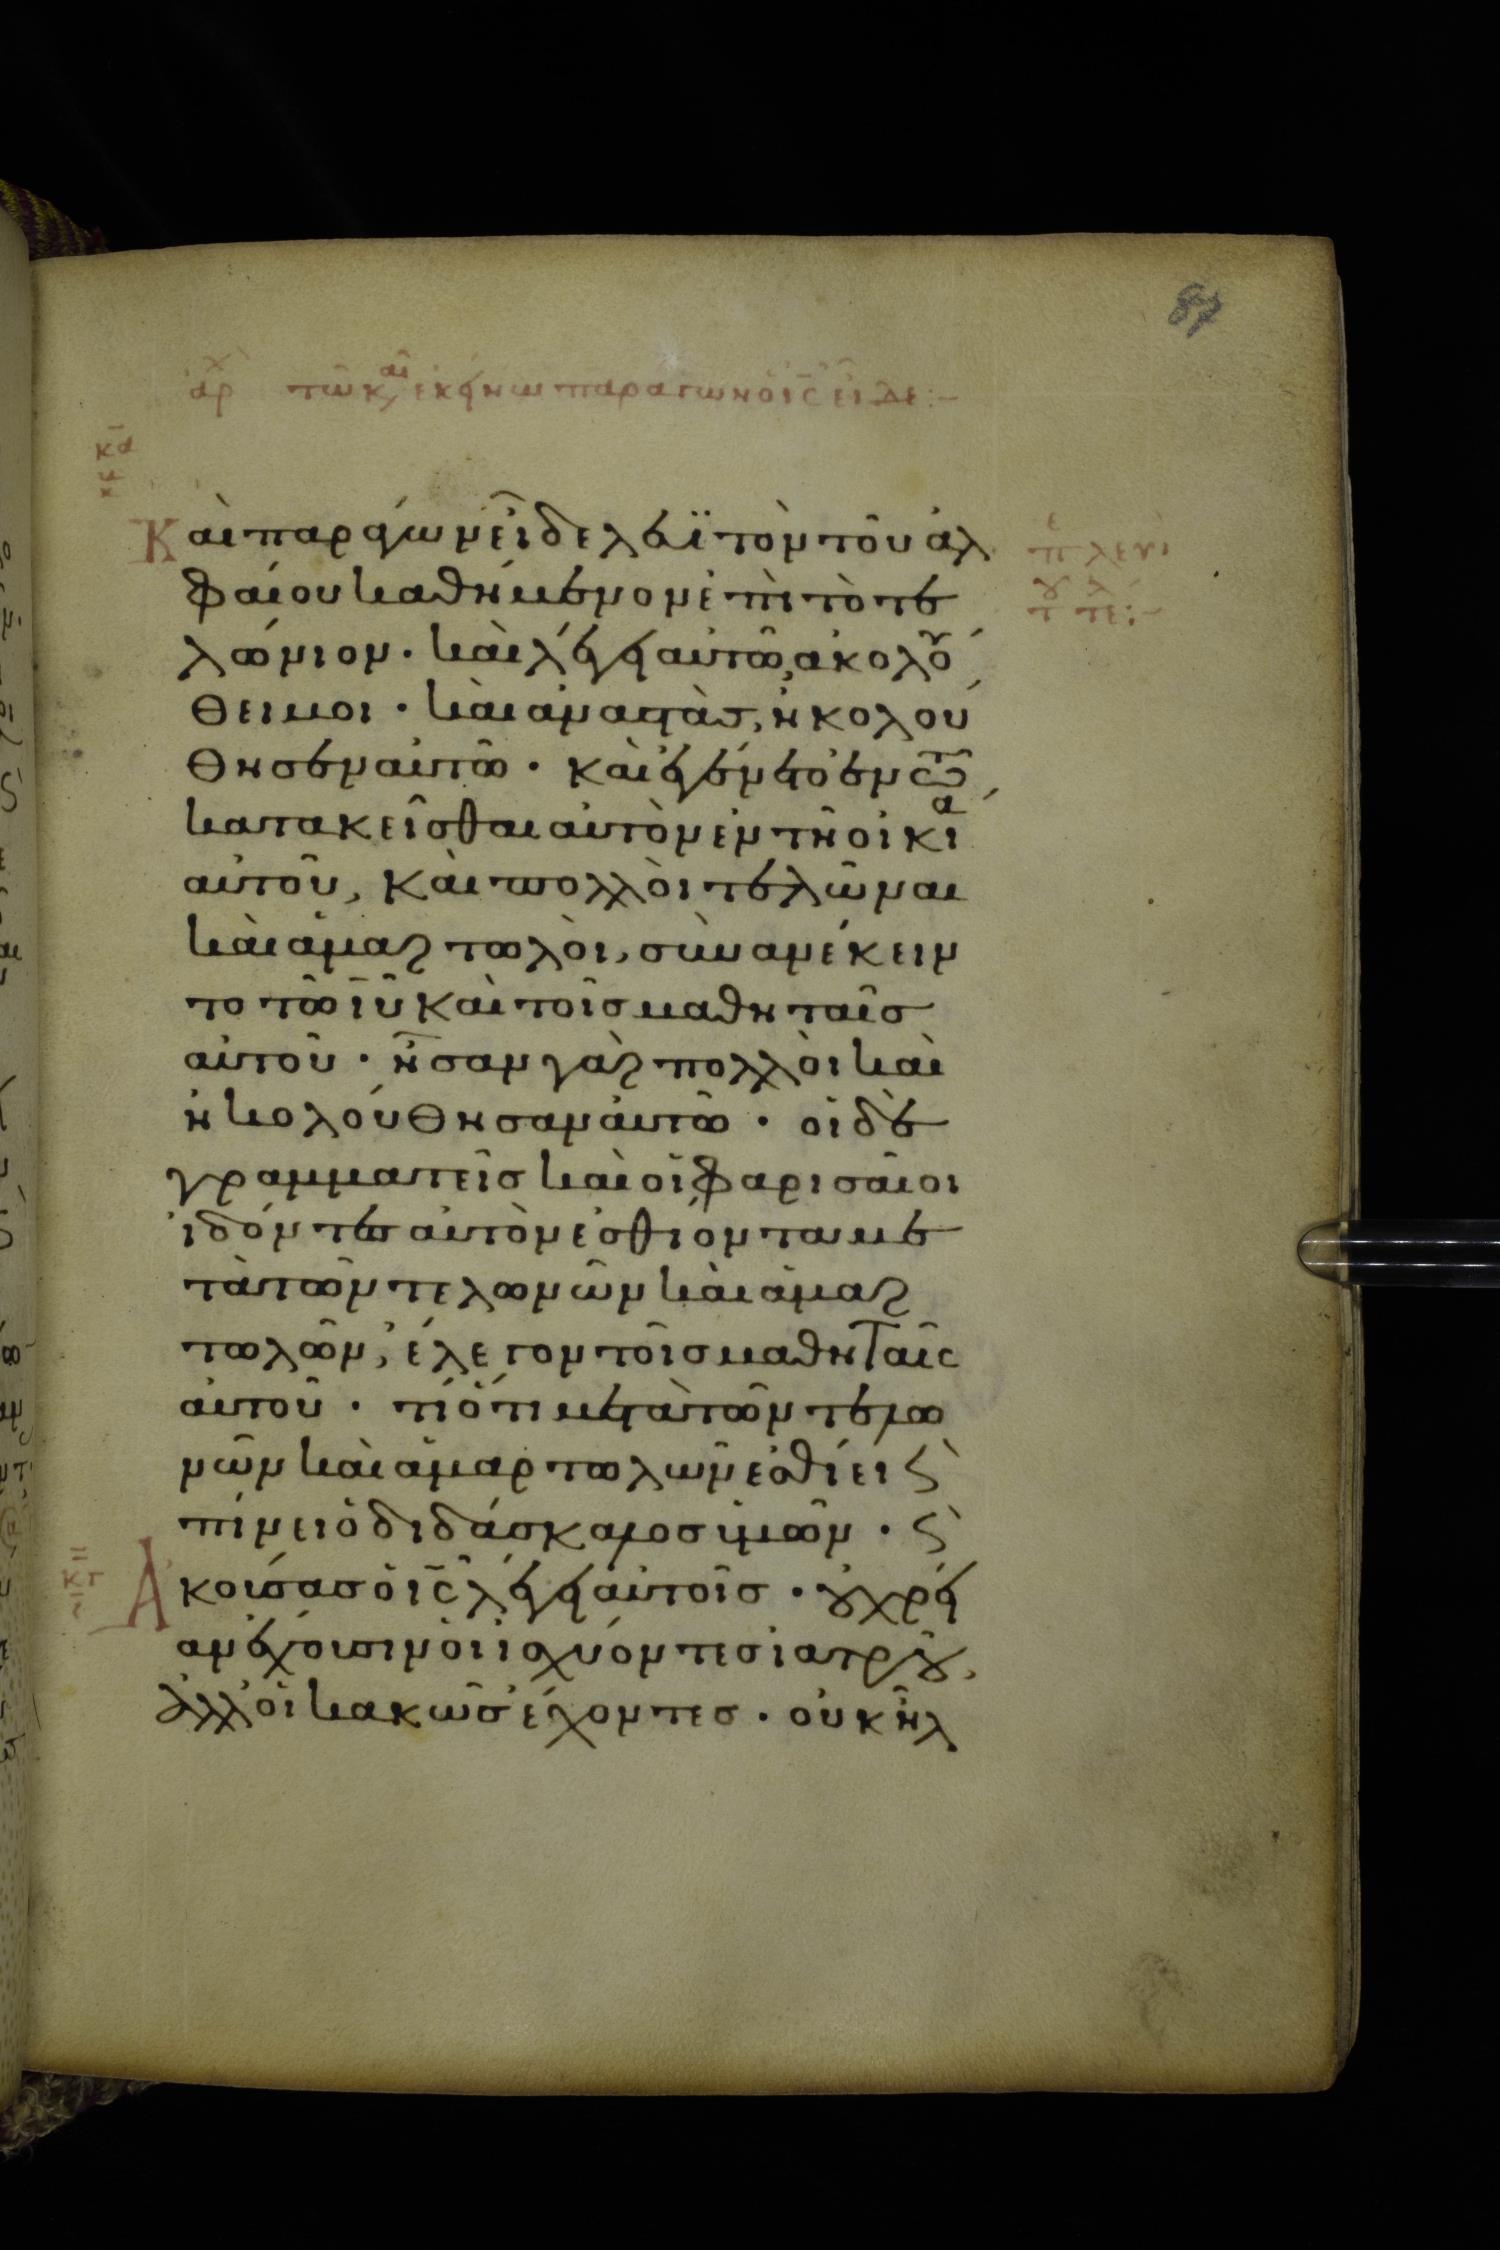 87
ἀρχ τῶ καιρῶ ἐκείνω παράγων ὁ ις εἶδε:-
κα
Καὶ παράγων εἶδε λευϊ τὸν τοῦ ἀλ
φαίου καθήμενον ἐπὶ τὸ τε
λώνιον · καὶ λέγει αὐτῶ, ἀκολού
θει μοι · καὶ ἀναστὰσ, ἠκολού
θησεν αὐτῶ · καὶ ἐγένετο ἐν τῶ
κατακεῖσθαι αὐτὸν ἐν τῆ οἰκία
αὐτοῦ, καὶ πολλοὶ τελῶναι
καὶ ἁμαρτωλοὶ, συνανέκειν
το τῶ ιυ καὶ τοῖσ μαθηταῖσ
αὐτοῦ · ἦσαν γὰρ πολλοὶ καὶ
ἠκολούθησαν αὐτῶ · οἱ δὲ
γραμματεῖσ καὶ οἱ φαρισαῖοι
ἰδόντεσ αὐτὸν ἐσθίοντα με
τὰ τῶν τελωνῶν καὶ ἁμαρ
τωλῶν, ἔλεγον τοῖσ μαθηταῖς
αὐτοῦ · τί ὅτι μετὰ τῶν τελω
νῶν καὶ ἁμαρτωλῶν ἐσθίει ϗ
πίνει ὁ διδάσκαλοσ ὑμῶν · ϗ
κγ
Ἀκούσασ ὁ ις λέγει αὐτοῖσ · οὐ χρεί
αν ἔχουσιν οἱ ἰσχύοντεσ ἰατροῦ,
ἀλλ οἱ κακῶσ ἔχοντεσ · οὐκ ἦλ